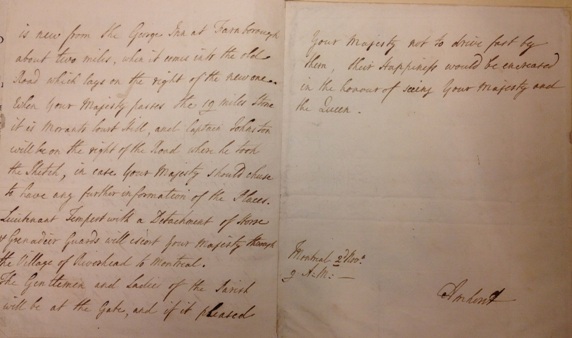 is new from the George Inn at Farnborough
about two miles, when it comes into the old
Road which lays on the right of the new one.
When Your Majesty passes the 19 miles Stone
it is Morants Court Hill, and Captain Johnston
will be on the right of the Road where he took
the Sketch, in case Your Majesty should chuse
to have any further information of the Places.
Lieutenant Tempest with a Detachment of Horse
Grenadier Guards will escort your Majesty through
the Village of Riverhead to Montreal.
The Gentlemen and Ladies of the Parish
will be at the Gate, and if it pleased
Your Majesty not to drive fast by
them, their Happiness would be encreased
in the honour of seeing Your Majesty and
the Queen.
Montreal 2d Novr.
9 A.M: —
Amherst